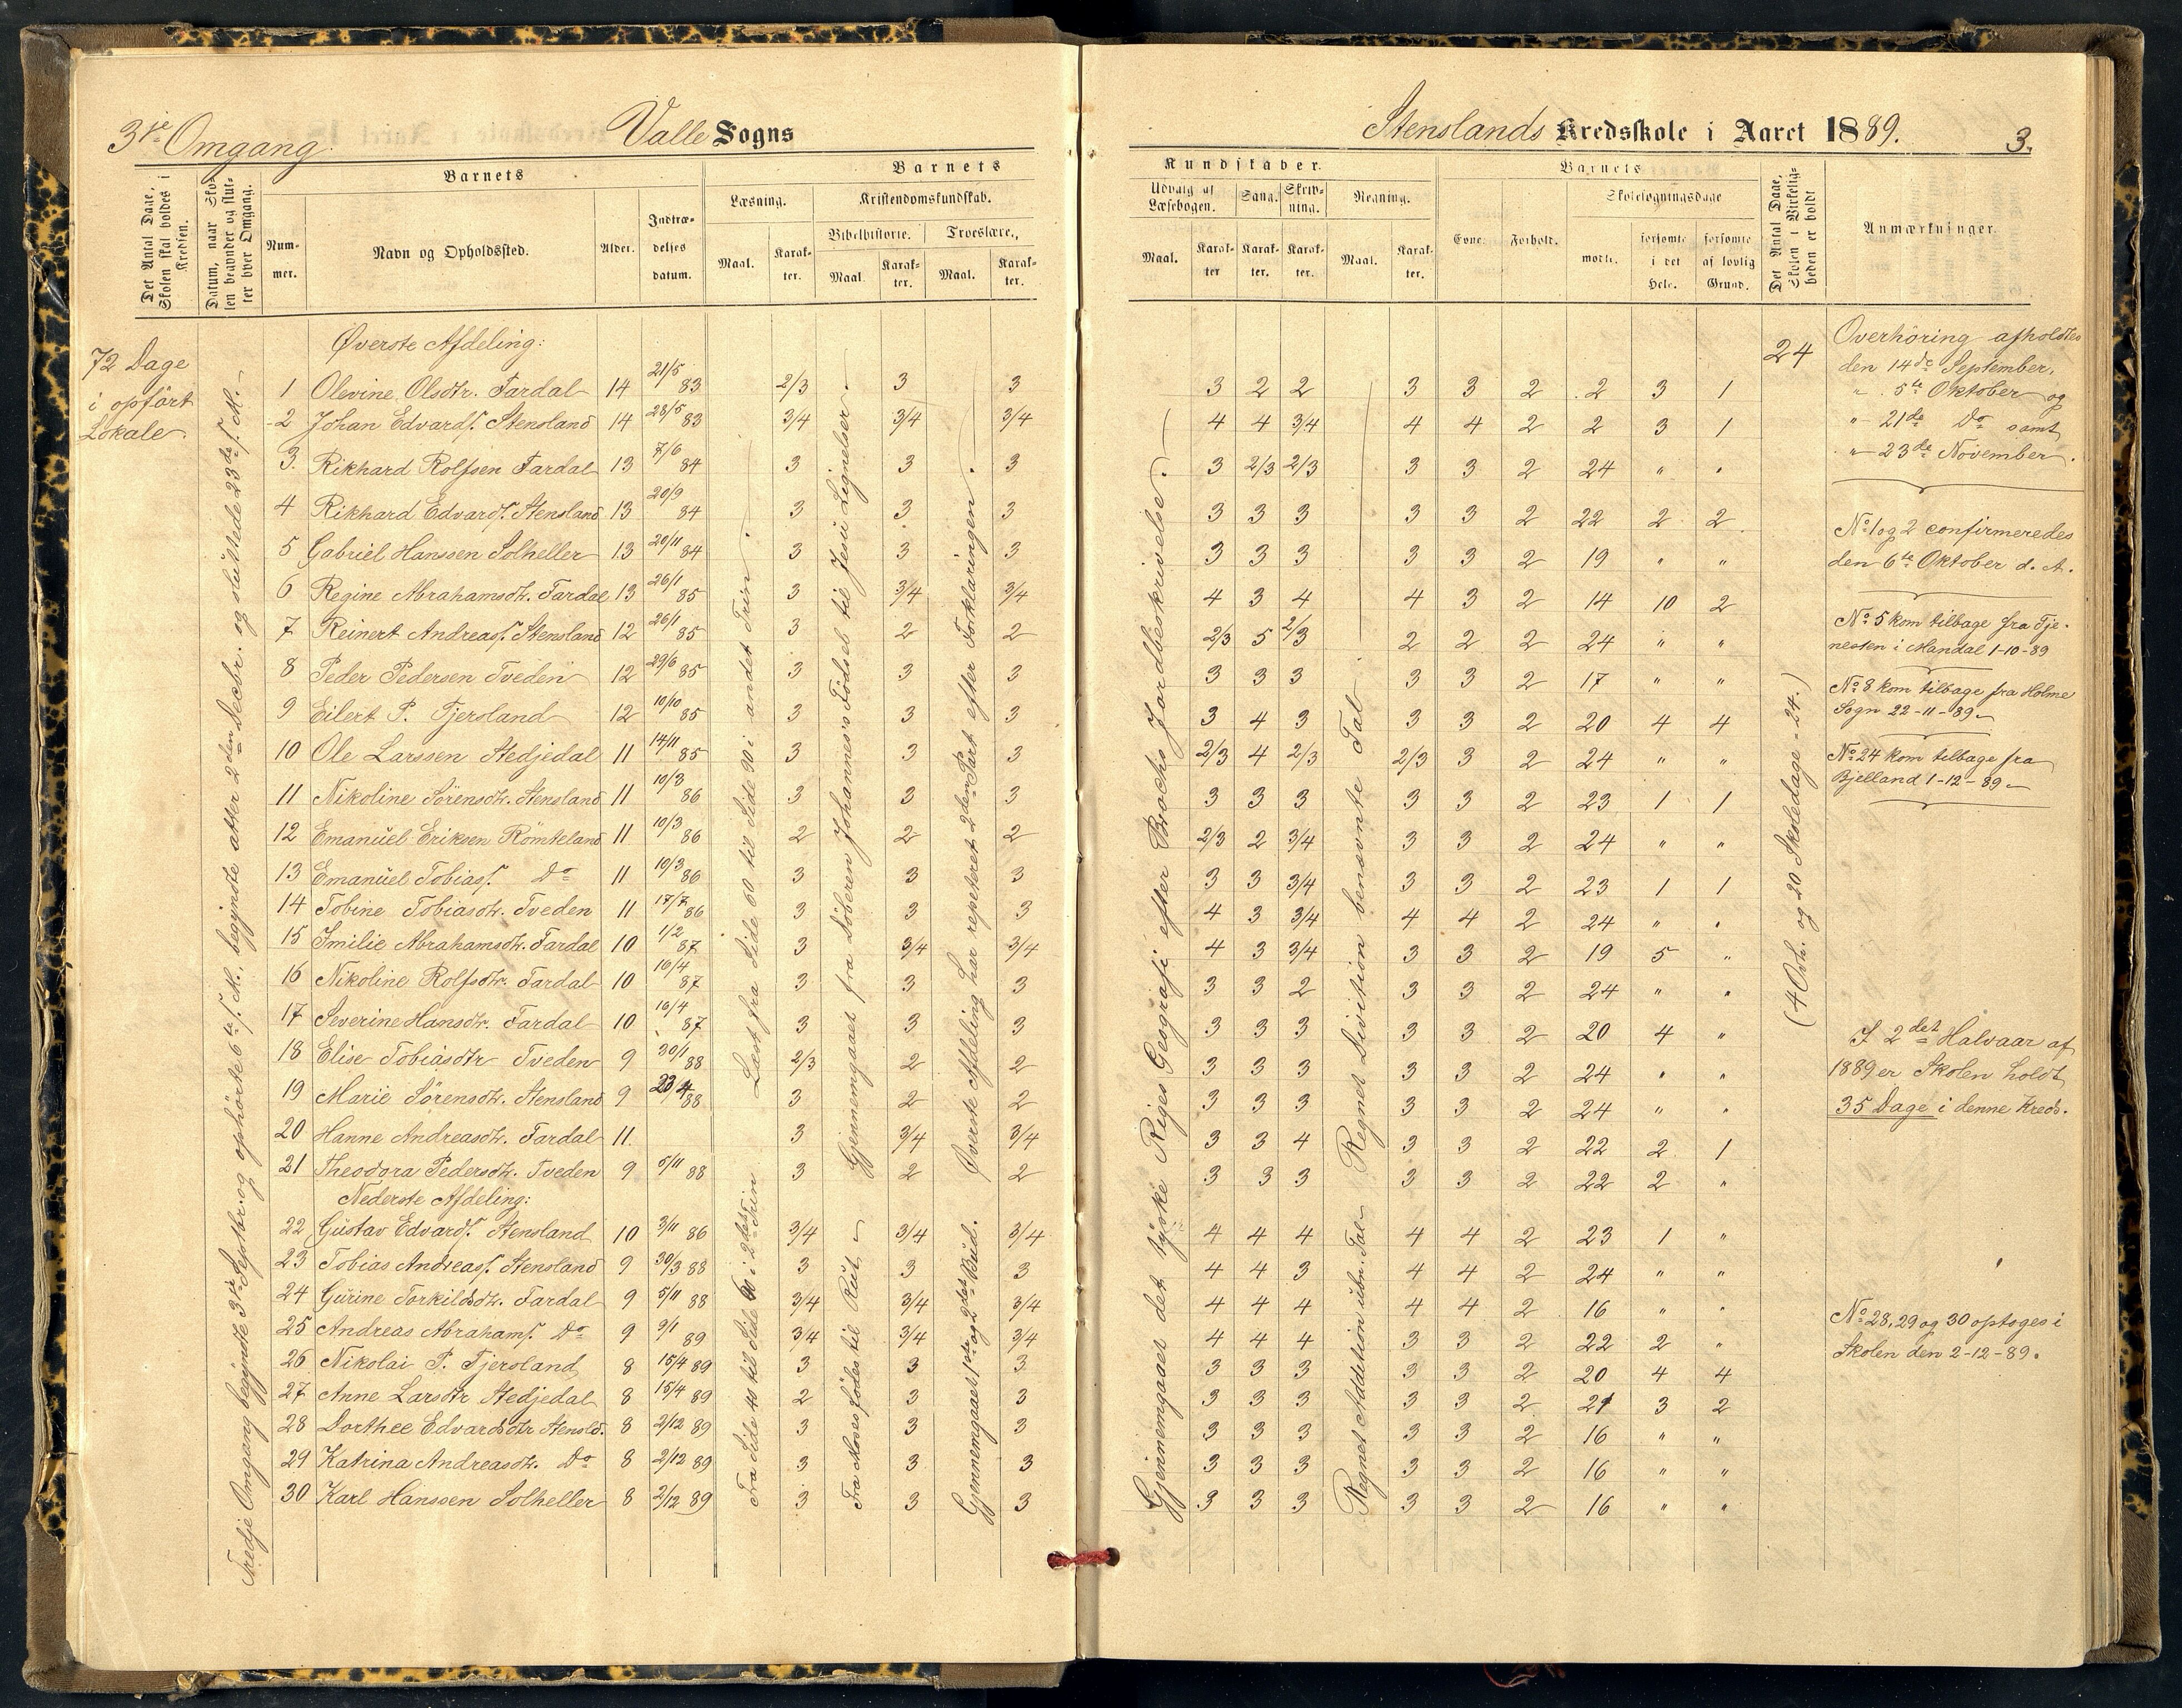 3die Omgang.
Valle Sogns
Det Antal Dage, Skolen skal holdes i Kredsen.
Datum, naar Skolen begynder og slutter hver Omgang.
Barnets
Nummer.
Navn og Opholdssted.
Alder.
Indtrædelsesdatum.
Barnets
Læsning.
Maal.
Karakter.
Kristendomskundskab.
Bibelhistorie.
Maal.
Karakter.
Troeslære.
Maal.
Karakter.
72 Dage
i opført
Lokale.
Tredje Omgang begyndte 3die Septbr. og ophørte 6te s. M., begyndte atter 2den Decbr. og sluttede 23de s. M.
Øverste Afdeling:
1 Olevine Olsdtr. Fardal 14 21/5 83 2/3 3 3
2 Johan Edvards. Stensland 14 28/5 83 3/4 3/4 3/4
3. Rikhard Rolfsen Fardal 13 7/6 84 3 3 3
4 Rikhard Edvards. Stensland 13 20/9 84 3 3 3
5 Gabriel Hanssen Solheller 13 20/11 84 3 3 3
6 Regine Abrahamsdtr. Fardal 13 26/1 85 3 3/4 3/4
7 Reinert Andreass. Stensland 12 26/1 85 3 2 2
8 Peder Pedersen Tveden 12 29/6 85 3 3 3
9 Eilert P. Tjersland 12 10/10 85 3 3 3
10 Ole Larssen Stedjedal 11 14/11 85 3 3 3
11 Nikoline Sörensdtr. Stensland 11 10/3 86 3 3 3
12 Emanuel Eriksen Römteland 11 10/3 86 2 2 2
13 Emanuel Tobiass. Do 11 10/3 86 3 3 3
14 Tobine Tobiasdtr. Tveden 11 17/7 86 3 3 3
15 Imilie Abrahamsdtr. Fardal 10 1/2 87 3 3/4 3/4
16 Nikoline Rolfsdtr. Fardal 10 16/4 87 3 3 3
17 Severine Hansdtr. Fardal 10 16/4 87 3 3 3
18 Elise Tobiasdtr Tveden 9 30/1 88 2/3 2 2
19 Marie Sörensdtr. Stensland 9 23/4 88 3 2 2
20 Hanne Andreasdtr. Fardal 11 3 3/4 3/4
21 Theodora Pedersdtr. Tveden 9 5/11 88 3 2 2
Nederste Afdeling:
22 Gustav Edvards. Stensland 10 3/11 86 3/4 3/4 3/4
23 Tobias Andreass. Stensland 9 30/3 88 3 3 3
24 Gurine Torkildsdtr. Fardal 9 5/11 88 3/4 3/4 3/4
25 Andreas Abrahams. Do 9 9/1 89 3/4 3/4 3/4
26 Nikolai P. Tjersland 8 15/4 89 3 3 3
27 Anne Larsdtr Stedjedal 8 15/4 89 2 3 3
28 Dorthee Edvardsdtr Stensld. 8 2/12 89 3 3 3
29 Katrina Andreasdtr. Do 8 2/12 89 3 3 3
30 Karl Hanssen Solheller 8 2/12 89 3 3 3
Læst fra Side 60 til Side 90 i andet Trin.
Fra Side 40 til Side 60 i 2det Trin
Gjennemgaaet fra Döberen Johannes's Födsel til Jesu Lignelser.
Fra Moses födes til Rut
Øverste Afdeling har repeteret 2den Part efter Forklaringen.
Gjennemgaaet 1ste og 2det Bud.
Stenslands Kredsskole i Aaret 1889.
3.
Kundskaber.
Udvalg af Læsebogen.
Maal.
Karakter
Sang.
Karakter.
Skrivning.
Karakter.
Regning.
Maal.
Karakter.
Barnets
Evne.
Forhold.
Skolesøgningsdage
mødte.
forsømte i det Hele.
forsømte af lovlig Grund.
Det Antal Dage, Skolen i Virkeligheden er holdt
Anmærkninger.
Gjennemgaaet det tyske Riges Geografi efter Brochs Jordbeskrivelse.
Regnet Division benævnte Tal
Regnet Addition ubn. Tal
3 2 2 3 3 2 2 3 1
4 4 3/4 4 4 2 2 3 1
3 2/3 2/3 3 3 2 24 " "
3 3 3 3 3 2 22 2 2
3 3 3 3 3 2 19 " "
4 3 4 4 3 2 14 10 2
2/3 5 2/3 2 2 2 24 " "
3 3 3 3 3 2 17 " "
3 4 3 3 3 2 20 4 4
2/3 4 2/3 2/3 3 2 24 " "
3 3 3 3 3 2 23 1 1
2/3 2 3/4 3 3 2 24 " "
3 3 3/4 3 3 2 23 1 1
4 3 3/4 4 4 2 24 " "
4 3 3/4 3 3 2 19 5 "
3 3 2 3 3 2 24 " "
3 3 3 3 3 2 20 4 "
3 3 3 3 3 2 24 " "
3 3 3 3 3 2 24 " "
3 3 4 3 3 2 22 2 1
3 3 3 3 3 2 22 2 "
4 4 4 4 4 2 23 1 "
4 4 3 4 4 2 24 " "
4 4 4 4 4 2 16 " "
4 4 4 3 3 2 22 2 "
3 3 3 3 3 2 20 4 4
3 3 3 3 3 2 21 3 2
3 3 3 3 3 2 16 " "
3 3 3 3 3 2 16 " "
3 3 3 3 3 2 16 " "
24
(4 Ovh. og 20 Skoledage - 24.)
Overhöring afholdtes
den 14de September,
" 5te Oktober og
" 21de Do samt
" 23de November.
No 1 og 2 confirmeredes
den 6te Oktober d. A.
No 5 kom tilbage fra Tje-
nesten i Mandal 1-10-89
No 8 kom tilbage fra Holme
Sogn 22-11-89
No 24 kom tilbage fra
Bjelland 1-12-89
I 2det Halvaar af
1889 er Skolen holdt
35 Dage i denne Kreds.
No 28, 29 og 30 optoges i
Skolen den 2-12-89.